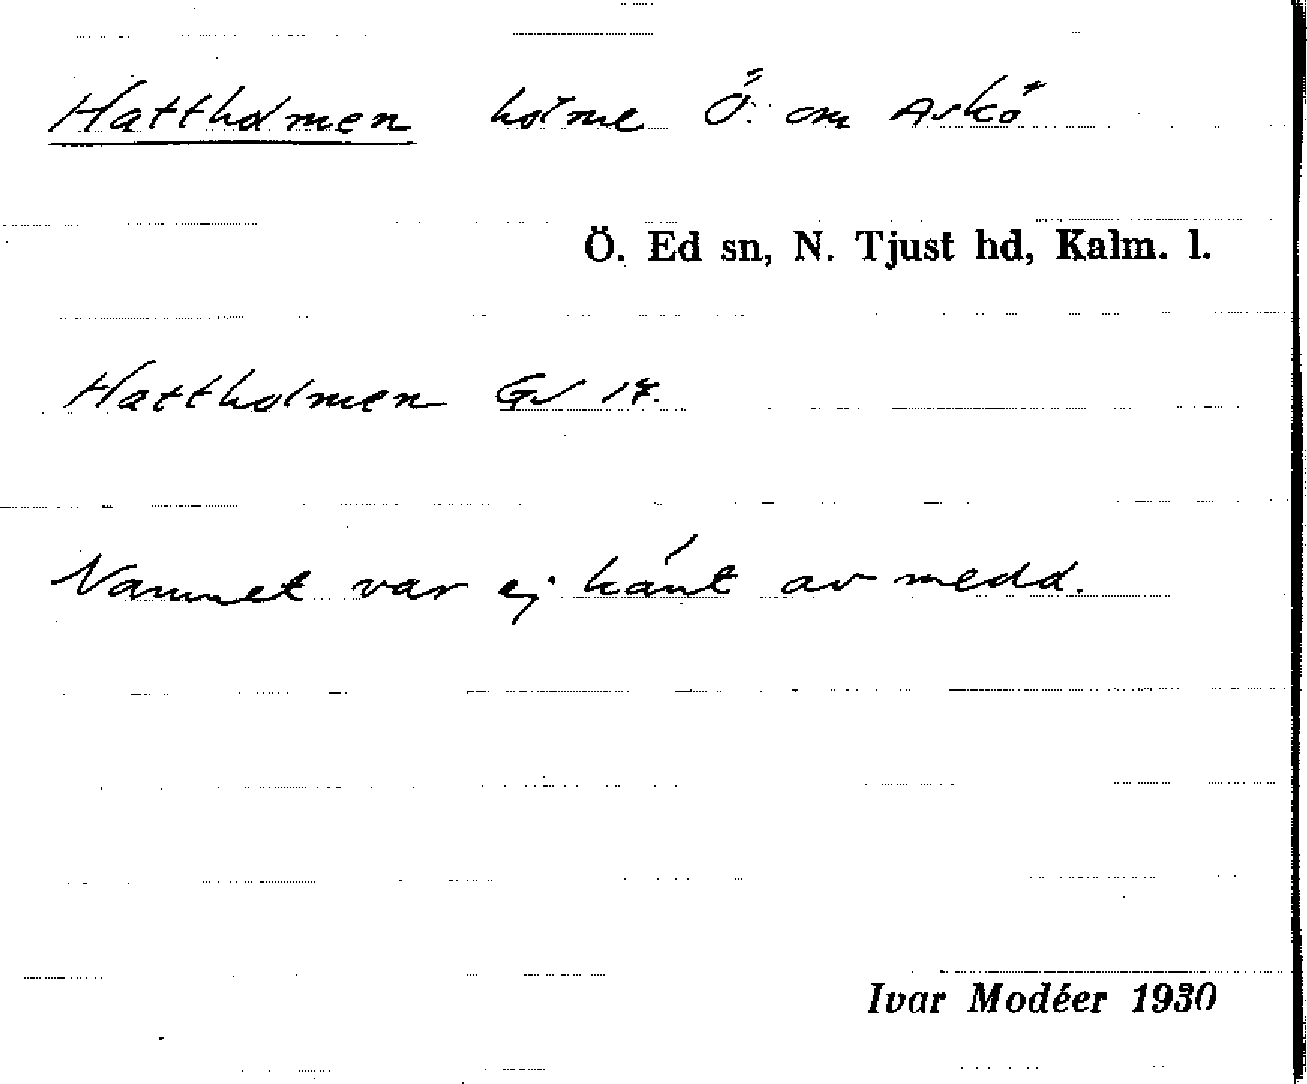 Hattholmen holme Ö. om Askö
Ö. Ed sn, N. Tjust hd, Kalm. l.
Hattholmen GV 17.
Namnet var ej känt av medd.
Ivar Modéer 1930